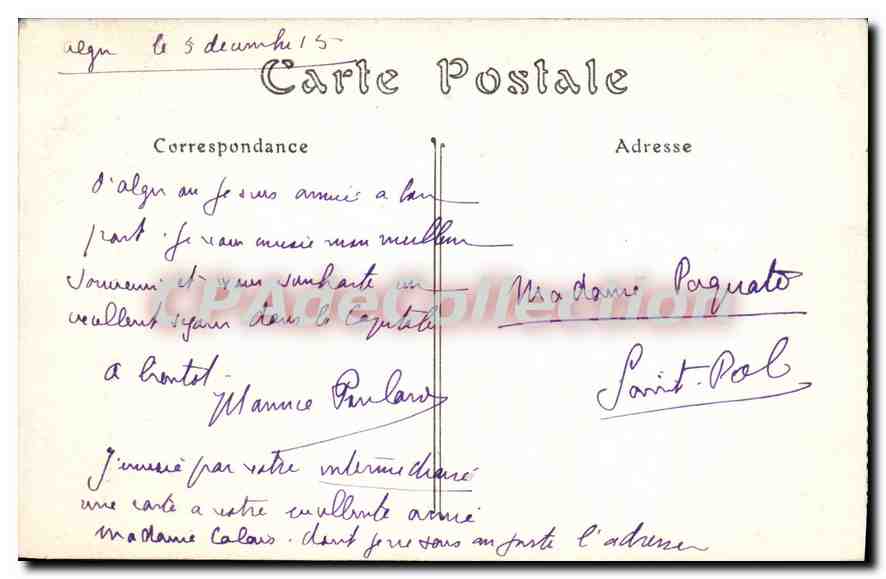 alger le 5 decembre 15
Carte Postale
Correspondance
Adresse
D'alger ou je suis arrivé a bon
port. Je vous envoie mon meilleur
souvenir et vous souhaite un
excellent séjour dans la Capitale
a bientot -
Maurice Poulard
J'envoie par votre intermediaire
une carte a votre excellente amie
madame Calais. dont je ne sais au juste l'adresse
Madame Paquate
Saint-Pol
CPAdeCollection